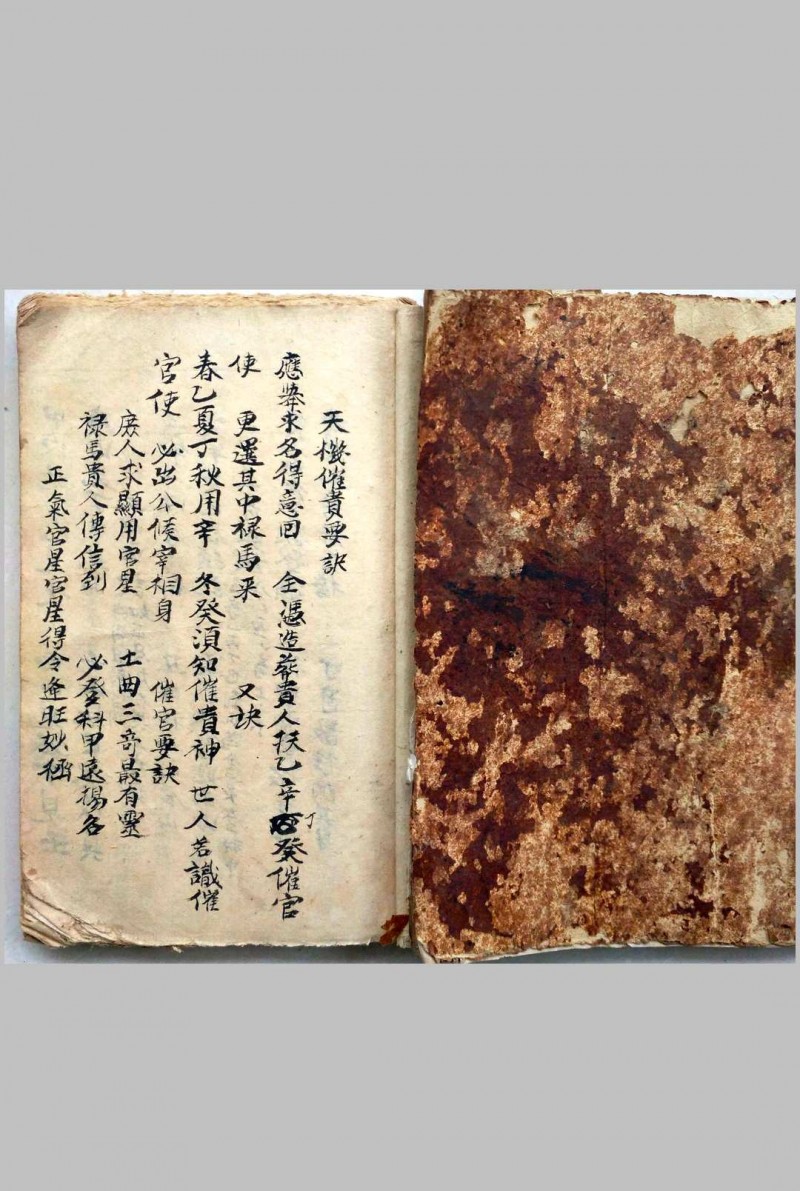 天機催貴要訣
應舉求名得意回　全憑造葬貴人扶乙辛丁癸催官
使　更選其中禄馬来　又訣
春乙夏丁秋用辛　冬癸須知催貴神　世人若識催
官使　必出公候宰相身　催官要訣
庶人求顯用官星　土曲三奇最有靈
禄馬貴人傳信到　必登科甲遠揚名
正氣官星官星得令逢旺妙極